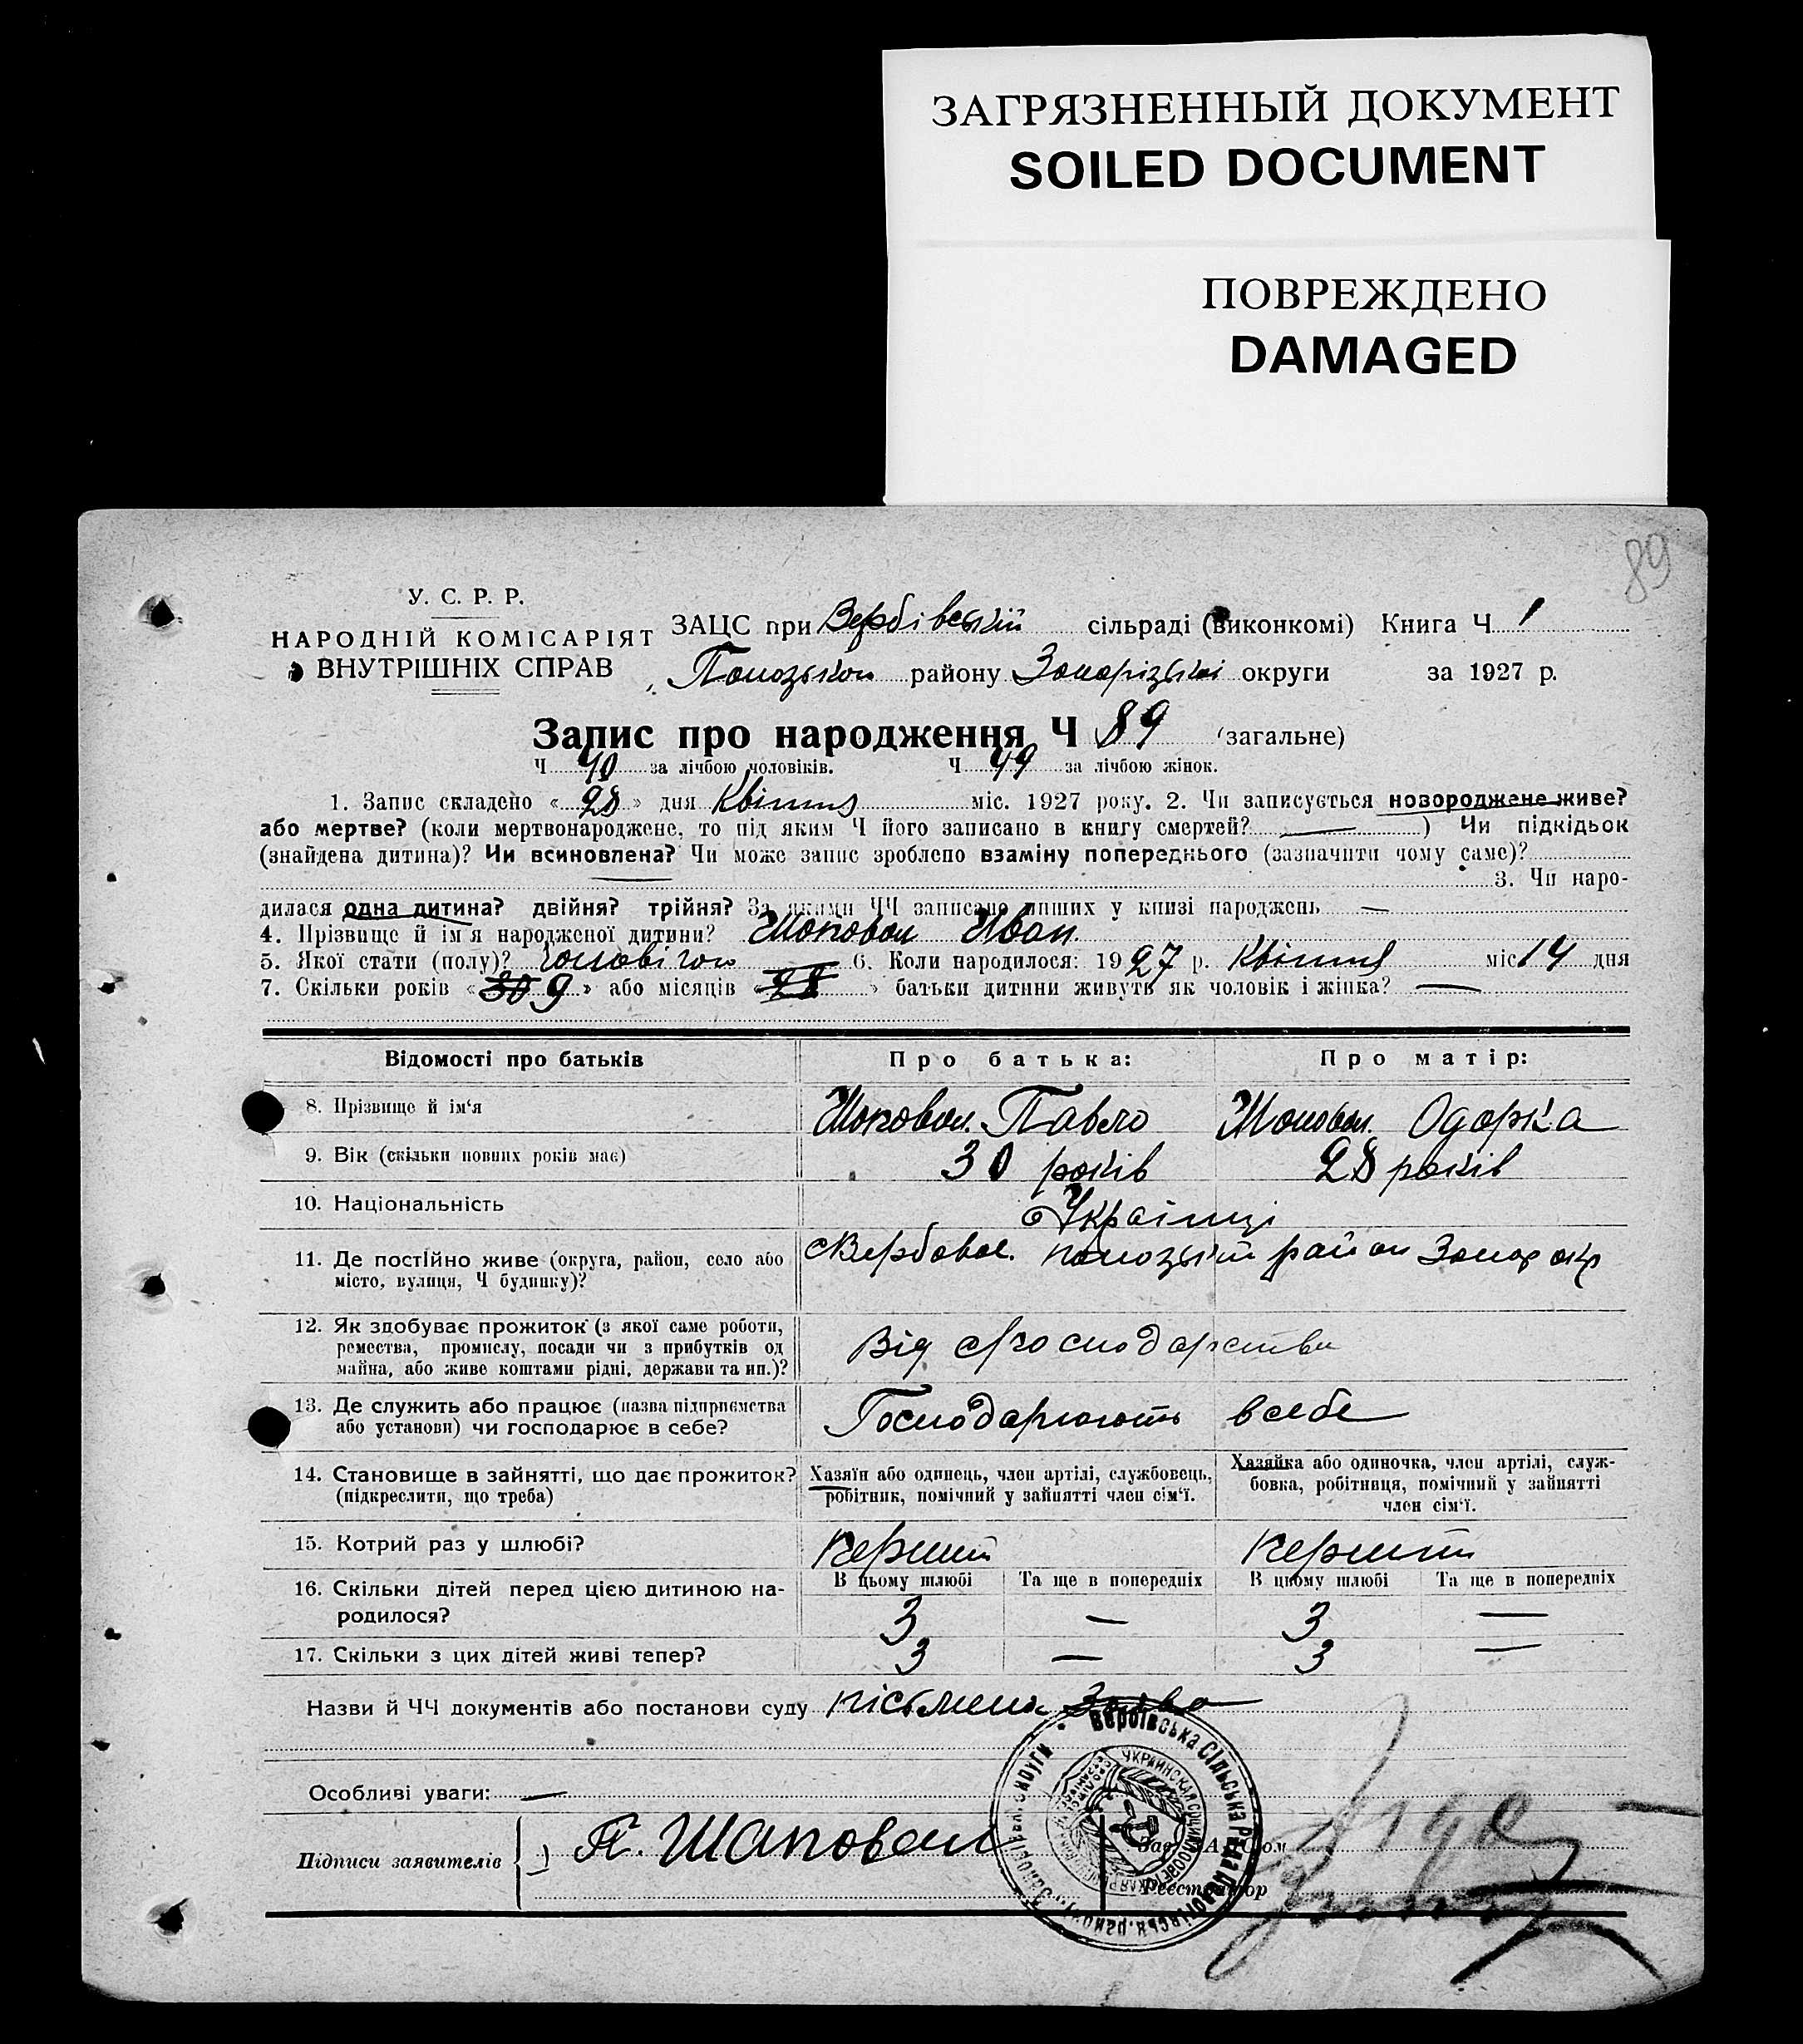 ЗАГРЯЗНЕННЫЙ ДОКУМЕНТ
SOILED DOCUMENT
ПОВРЕЖДЕНО
DAMAGED
89
У. С. Р. Р.
НАРОДНІЙ КОМІСАРІЯТ
ВНУТРІШНІХ СПРАВ
ЗАЦС при Вербівській сільраді (виконкомі) Книга Ч 1
району Запорізької округи за 1927 р.
Запис про народження Ч 89 (загальне)
Ч 40 за лічбою чоловіків. Ч 49 за лічбою жінок.
1. Запис складено « 28 » дня Квітня міс. 1927 року. 2. Чи записується новороджене живе?
або мертве? (коли мертвонароджене, то під яким Ч його записано в книгу смертей? — ) Чи підкідьок
(знайдена дитина)? Чи всиновлена? Чи може запис зроблено взаміну попереднього (зазначити чому саме)?
— 3. Чи наро-
дилася одна дитина? двійня? трійня? За якими ЧЧ записано инших у книзі народжень —
4. Прізвище й ім'я народженої дитини? Шаповал Іван.
5. Якої стати (полу)? чоловічої 6. Коли народилося: 1927 р. Квітня міс 14 дня
7. Скільки років « 30 9 » або місяців « 28 » батьки дитини живуть як чоловік і жінка? —
Відомості про батьків Про батька: Про матір:
8. Прізвище й ім'я Шаповал. Павло Шаповал. Одарка
9. Вік (скільки повних років має) 30 років 28 років
10. Національність Українці
11. Де постійно живе (округа, район, село або
місто, вулиця, Ч будинку)? с Вербове. район Запор окр
12. Як здобуває прожиток (з якої саме роботи,
ремества, промислу, посади чи з прибутків од
майна, або живе коштами рідні, держави та ин.)? Від господарства
13. Де служить або працює (назва підприємства
або установи) чи господарює в себе? Господарюють в себе
14. Становище в зайнятті, що дає прожиток?
(підкреслити, що треба)
Хазяїн або одинець, член артілі, службовець,
робітник, помічний у зайнятті член сім'ї.
Хазяйка або одиночка, член артілі, служ-
бовка, робітниця, помічний у зайнятті
член сім'ї.
15. Котрий раз у шлюбі? Перший Перший
16. Скільки дітей перед цією дитиною на-
родилося?
В цьому шлюбі Та ще в попередніх В цьому шлюбі Та ще в попередніх
3 — 3 —
17. Скільки з цих дітей живі тепер? 3 — 3 —
Назви й ЧЧ документів або постанови суду
Особливі уваги: —
Підписи заявителів 1) П. Шаповал
Реєстратор
Вербівська Сільська Рада